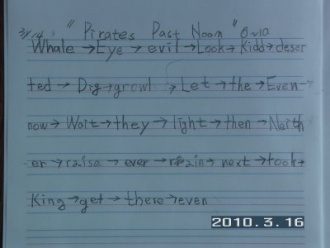 3/rd! "Pirates Past Noon" 6 v10
Whale → Eye → evil → Look → Kidd → deser
ted → Dig → growl → Let → the → Even →
now → Wait → they → light → then → Neith
er → raise → ever → rain → next → took →
King → get → there → even
2010.3.16